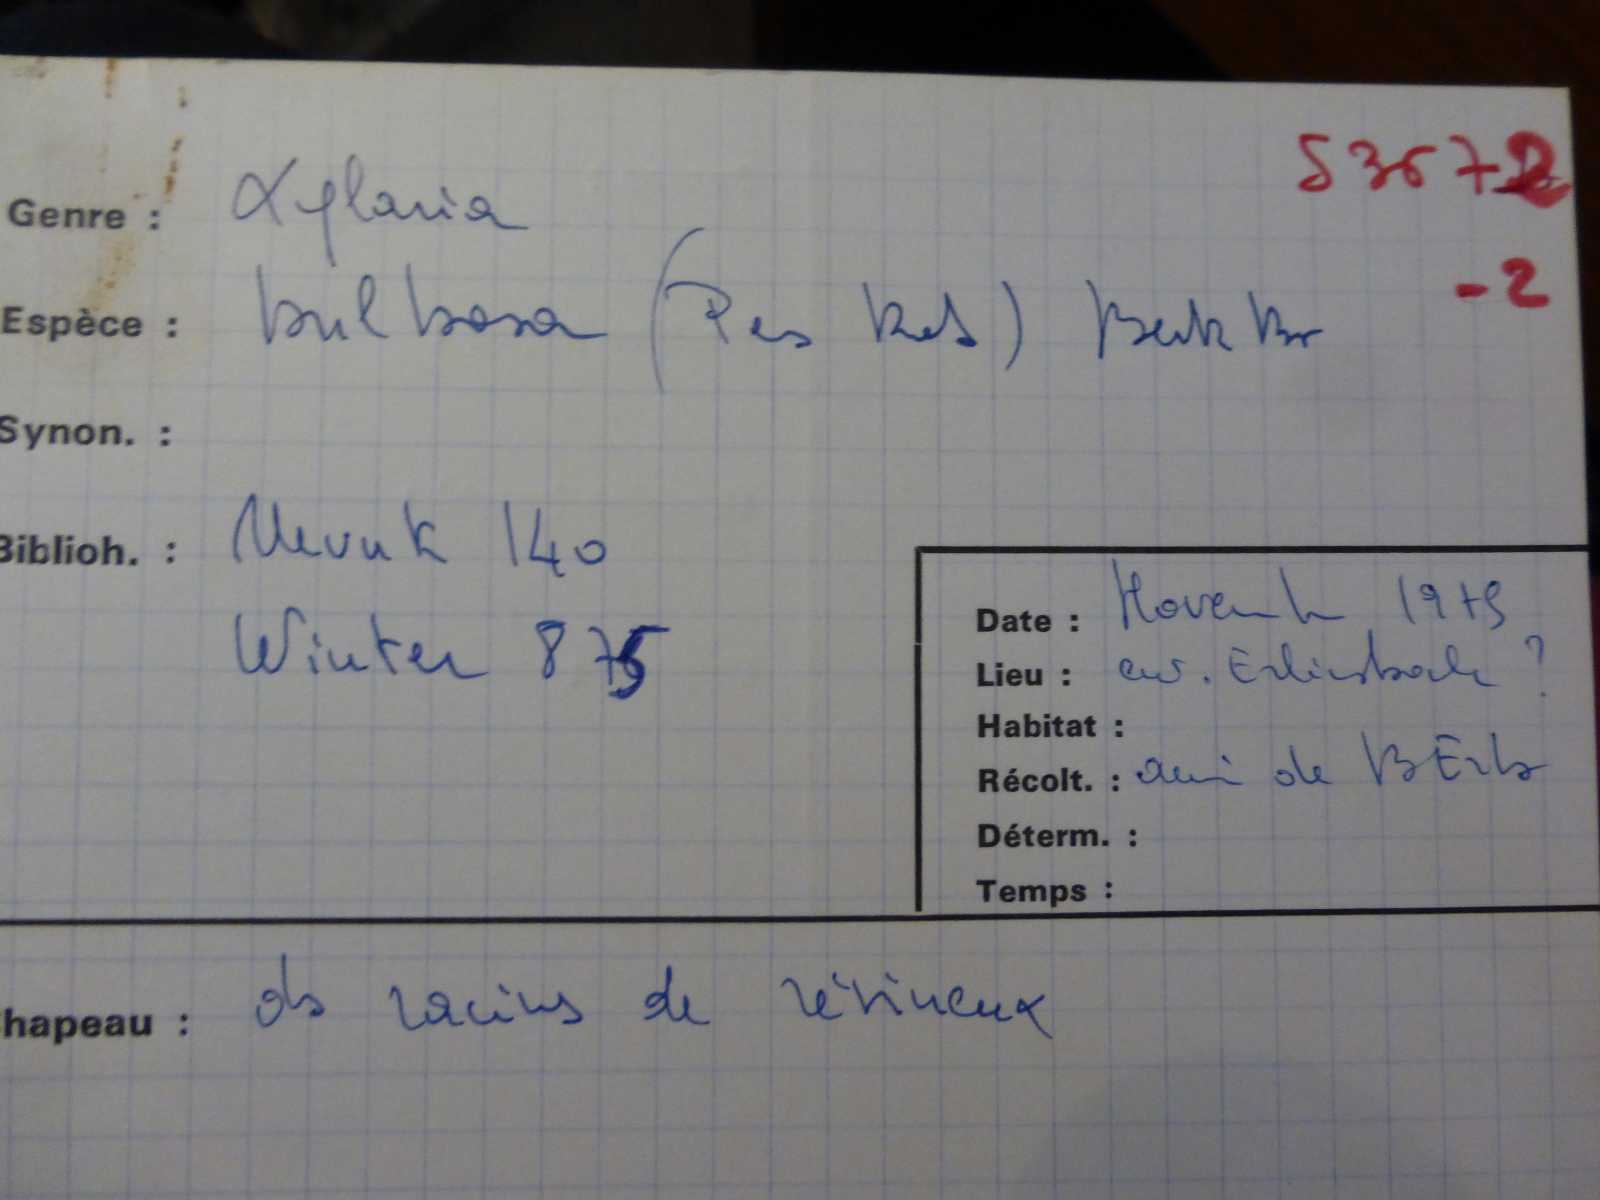 53672
-2
Genre : Xylaria
Espèce : bulbosa (Pers ) Berk Br
Synon. :
Biblioh. : 140
Winter 875
Date : Novemb 1975
Lieu : env. Erlinsbach ?
Habitat :
Récolt. : ami de B Erb
Déterm. :
Temps :
hapeau : ds racines de résineux